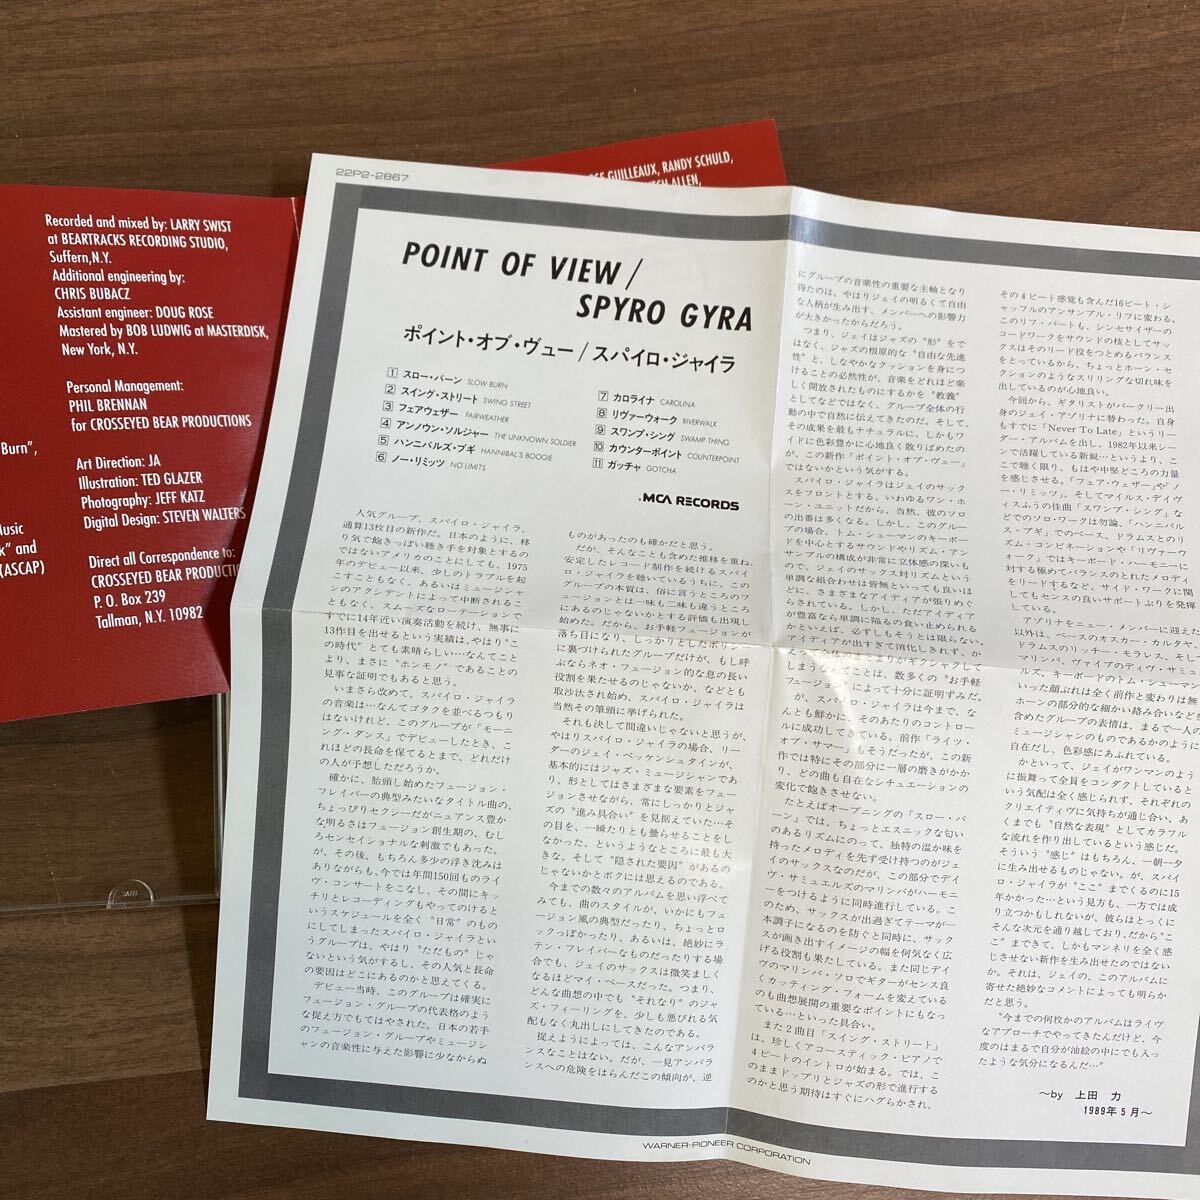 OSE GUILLEAUX, RANDY SCHULD,
ALLEN,
Recorded and mixed by: LARRY SWIST
at BEARTRACKS RECORDING STUDIO,
Suffern,N.Y.
Additional engineering by:
CHRIS BUBACZ
Assistant engineer: DOUG ROSE
Mastered by BOB LUDWIG at MASTERDISK,
New York, N.Y.
Personal Management:
PHIL BRENNAN
for CROSSEYED BEAR PRODUCTIONS
Burn",
Art Direction: JA
Illustration: TED GLAZER
Photography: JEFF KATZ
Digital Design: STEVEN WALTERS
Music
k" and
(ASCAP)
Direct all Correspondence to:
CROSSEYED BEAR PRODUCTIO
P. O. Box 239
Tallman, N.Y. 10982
22P2-2867
POINT OF VIEW/
SPYRO GYRA
ポイント・オブ・ヴュー/スパイロ・ジャイラ
1 スロー・バーン SLOW BURN
2 スイング・ストリート SWING STREET
3 フェアウェザー FAIRWEATHER
4 アンノウン・ソルジャー THE UNKNOWN SOLDIER
5 ハンニバルズ・ブギ HANNIBAL'S BOOGIE
6 ノー・リミッツ NO LIMITS
7 カロライナ CAROLINA
8 リヴァーウォーク RIVERWALK
9 スワンプ・シング SWAMP THING
10 カウンターポイント COUNTERPOINT
11 ガッチャ GOTCHA
MCA RECORDS
人気グループ、スパイロ・ジャイラ、
通算13枚目の新作だ。日本のように、移
り気で飽きっぽい聴き手を対象とするの
ではないアメリカのことにしても、1975
年のデビュー以来、少しのトラブルを起
こすこともなく、あるいはミュージシャ
ンのアクシデントによって中断されるこ
ともなく、スムーズなローテーションで
すでに14年近い演奏活動を続け、無事に
13作目を出せるという実績は、やはり"こ
の時代"とても素晴らしい…なんてこと
より、まさに"ホンモノ"であることの
見事な証明でもあると思う。
いまさら改めて、スパイロ・ジャイラ
の音楽は…なんてゴタクを並べるつもり
はないけれど、このグループが「モーニ
ング・ダンス」でデビューしたとき、こ
れほどの長命を保てるとまで、どれだけ
の人が予想しただろうか。
確かに、胎頭し始めたフュージョン・
フレイバーの典型みたいなタイトル曲の、
ちょっぴりセクシーだがニュアンス豊か
な明るさはフュージョン創生期の、むし
ろセンセイショナルな刺激でもあった。
が、その後、もちろん多少の浮き沈みは
ありながらも、今では年間150回ものライ
ヴ・コンサートをこなし、その間にキッ
チリとレコーディングもやってのけると
いうスケジュールを全く"日常"のもの
にしてしまったスパイロ・ジャイラとい
うグループは、やはり"ただもの"じゃ
ないという気がするし、その人気と長命
の要因はどこにあるのかと思えてくる。
デビュー当時、このグループは確実に
フュージョン・グループの代表格のよう
な捉え方でもてはやされた。日本の若手
のフュージョン・グループやミュージシ
ャンの音楽性に与えた影響に少なからぬ
ものがあったのも確かだと思う。
だが、そんなことも含めた推移を重ね、
安定したレコード制作を続けるスパイ
ロ・ジャイラを聴いているうちに、この
グループの本質は、俗に言うところのフ
ュージョンとは一味も二味も違うところ
にあるのじゃないかとする評価も出現し
始めた。だから、お手軽フュージョンが
落ち目になり、しっかりとしたポリシー
に裏づけられたグループだけが、もし呼
ぶならネオ・フュージョン的な息の長い
役割を果たせるのじゃないか、などとも
取沙汰され始め、スパイロ・ジャイラは
当然その筆頭に挙げられた。
それも決して間違いじゃないと思うが、
やはりスパイロ・ジャイラの場合、リー
ダーのジェイ・ベッケンシュタインが、
基本的にはジャズ・ミュージシャンであ
り、形としてはさまざまな要素をフュー
ジョンさせながら、常にしっかりとジャ
ズの"進み具合い"を見据えていた…そ
の目を、一瞬たりとも曇らせることをし
なかった、というようなところに最も大
きな、そして"隠された要因"があるの
じゃないかとボクには思えるのである。
今までの数々のアルバムを思い浮べて
みても、曲のスタイルが、いかにもフュ
ージョン風の典型だったり、ちょっとロ
ックっぽかったり、あるいは、絶妙にラ
テン・フレイバーなものだったりする場
合でも、ジェイのサックスは微笑ましく
なるほどマイ・ペースだった。つまり、
どんな曲想の中でも"それなり"のジャ
ズ・フィーリングを、少しも悪びれる気
配もなく丸出しにしてきたのである。
捉えようによっては、こんなアンバラ
ンスなことはない。だが、一見アンバラ
ンスへの危険をはらんだこの傾向が、逆
にグループの音楽性の重要な主軸となり
得たのは、やはりジェイの明るくて自由
な人柄が生み出す、メンバーへの影響力
が大きかったからだろう。
つまり、ジェイはジャズの"形"をで
はなく、ジャズの根原的な"自由な先進
性"と、しなやかなクッションを身につ
けることの必然性が、音楽をどれほど楽
しく開放されたものにするかを"教義"
としてなどではなく、グループ全体の行
動の中で自然に伝えてきたのだ。そして、
その成果を最もナチュラルに、しかもワ
イドに色彩豊かに心地良く散りばめたの
が、この新作「ポイント・オブ・ヴュー」
ではないかという気がする。
スパイロ・ジャイラはジェイのサック
スをフロントとする、いわゆるワン・ホ
ーン・ユニットだから、当然、彼のソロ
の出番は多くなる。しかし、このグルー
プの場合、トム・シューマンのキーボー
ドを中心とするサウンドやリズム・アン
サンブルの構成が非常に立体感の深いも
ので、ジェイのサックス対リズムという
単調な組合わせは皆無といっても良いほ
どに、さまざまなアイディアが張りめぐ
らされている。しかし、ただアイディア
が豊富なら単調に陥るの食い止められる
かといえば、必ずしもそうとは限らない。
アイディアが出すぎて消化しきれず、か
しまうなんてことは、数多くの"お手軽
フュージョン"によって十分に証明ずみだ。
が、スパイロ・ジャイラは今まで、な
んとも鮮かに、そのあたりのコントロー
ルに成功してきている。前作「ライツ・
オブ・サマー」もそうだったが、この新
作では特にその部分に一層の磨きがかか
り、どの曲も自在なシチュエーションの
変化で飽きさせない。
たとえばオープニングの「スロー・バ
ーン」では、ちょっとエスニックな匂い
のあるリズムにのって、独特の温か味を
持ったメロディを先ず受け持つのがジェ
イのサックスなのだが、この部分でデイ
ヴ・サミュエルズのマリンバがハーモニ
ーをつけるように同時進行している。こ
のため、サックスが出過ぎてテーマが一
本調子になるのを防ぐと同時に、サック
スが画き出すイメージの幅を何気なく広
げる役割も果たしている。また同じデイ
ヴのマリンバ・ソロでギターがセンス良
くカッティング・フォームを変えている
のも曲想展開の重要なポイントにもなっ
ている…といった具合い。
また2曲目「スイング・ストリート」
は、珍しくアコースティック・ピアノで
4ビートのイントロが始まる。では、こ
のままドップリとジャズの形で進行する
のかと思う期待はすぐにハグらかされ、
その4ビート感覚も含んだ16ビート・シ
ャッフルのアンサンブル・リフに変わる。
このリフ・パートも、シンセサイザーの
コードワークをサウンドの核としてサッ
クスはそのリード役をつとめるバランス
をとっているから、ちょっとホーン・セ
クションのようなスリリングな切れ味を
出しているのが心地良い。
今回から、ギタリストがバークリー出
身のジェイ・アゾリナに替わった。自身
もすでに「Never To Late」というリー
ダー・アルバムを出し、1982年以来シー
ンで活躍している新鋭…というより、こ
こで聴く限り、もはや中堅どころの力量
を感じさせる。「フェア・ウェザー」や「ノ
ー・リミッツ」、そしてマイルス・デイヴ
ィスふうの佳曲「スワンプ・シング」な
どでのソロ・ワークは勿論、「ハンニバル
ス・ブギ」でのベース、ドラムスとのリ
ズム・コンビネーションや「リヴァーウ
ォーク」ではキーボード・ハーモニーに
対する極めてバランスのとれたメロディ
をリードするなど、サイド・ワークに関
してもセンスの良いサポートぶりを発揮
している。
アゾリナをニュー・メンバーに迎えた
以外は、ベースのオスカー・カルタヤ、
ドラムスのリッチー・モラレス、そして
マリンバ、ヴァイブのデイヴ・サミュエ
ルズ、キーボードのトム・シューマンと
いった顔ぶれは全く前作と変わりは無い。
ホーンの部分的な細かい絡み合いなど
含めたグループの表情は、まるで一人の
ミュージシャンのものであるかのように
自在だし、色彩感にあふれている。
かといって、ジェイがワンマンのよう
に振舞って全員をコンダクトしていると
いう気配は全く感じられず、それぞれの
クリエイティヴに気持ちが通じ合い、あ
くまでも"自然な表現"としてカラフル
な流れを作り出しているという感じだ。
そういう"感じ"はもちろん、一朝一夕
に生み出せるものじゃない。が、スパイ
ロ・ジャイラが"ここ"までくるのに15
年かかった…という見方も、一方では成
り立つかもしれないが、彼らはとっくに
そんな次元を通り越しており、だから"こ
こ"まできて、しかもマンネリを全く感
じさせない新作を生み出せたのではない
か。それは、ジェイの、このアルバムに
寄せた絶妙なコメントによっても明らか
だと思う。
"今までの何枚かのアルバムはライヴ
なアプローチでやってきたんだけど、今
度のはまるで自分が油絵の中にでも入っ
たような気分になるんだ…"
〜by 上田 力
1989年5月〜
WARNER-PIONEER CORPORATION